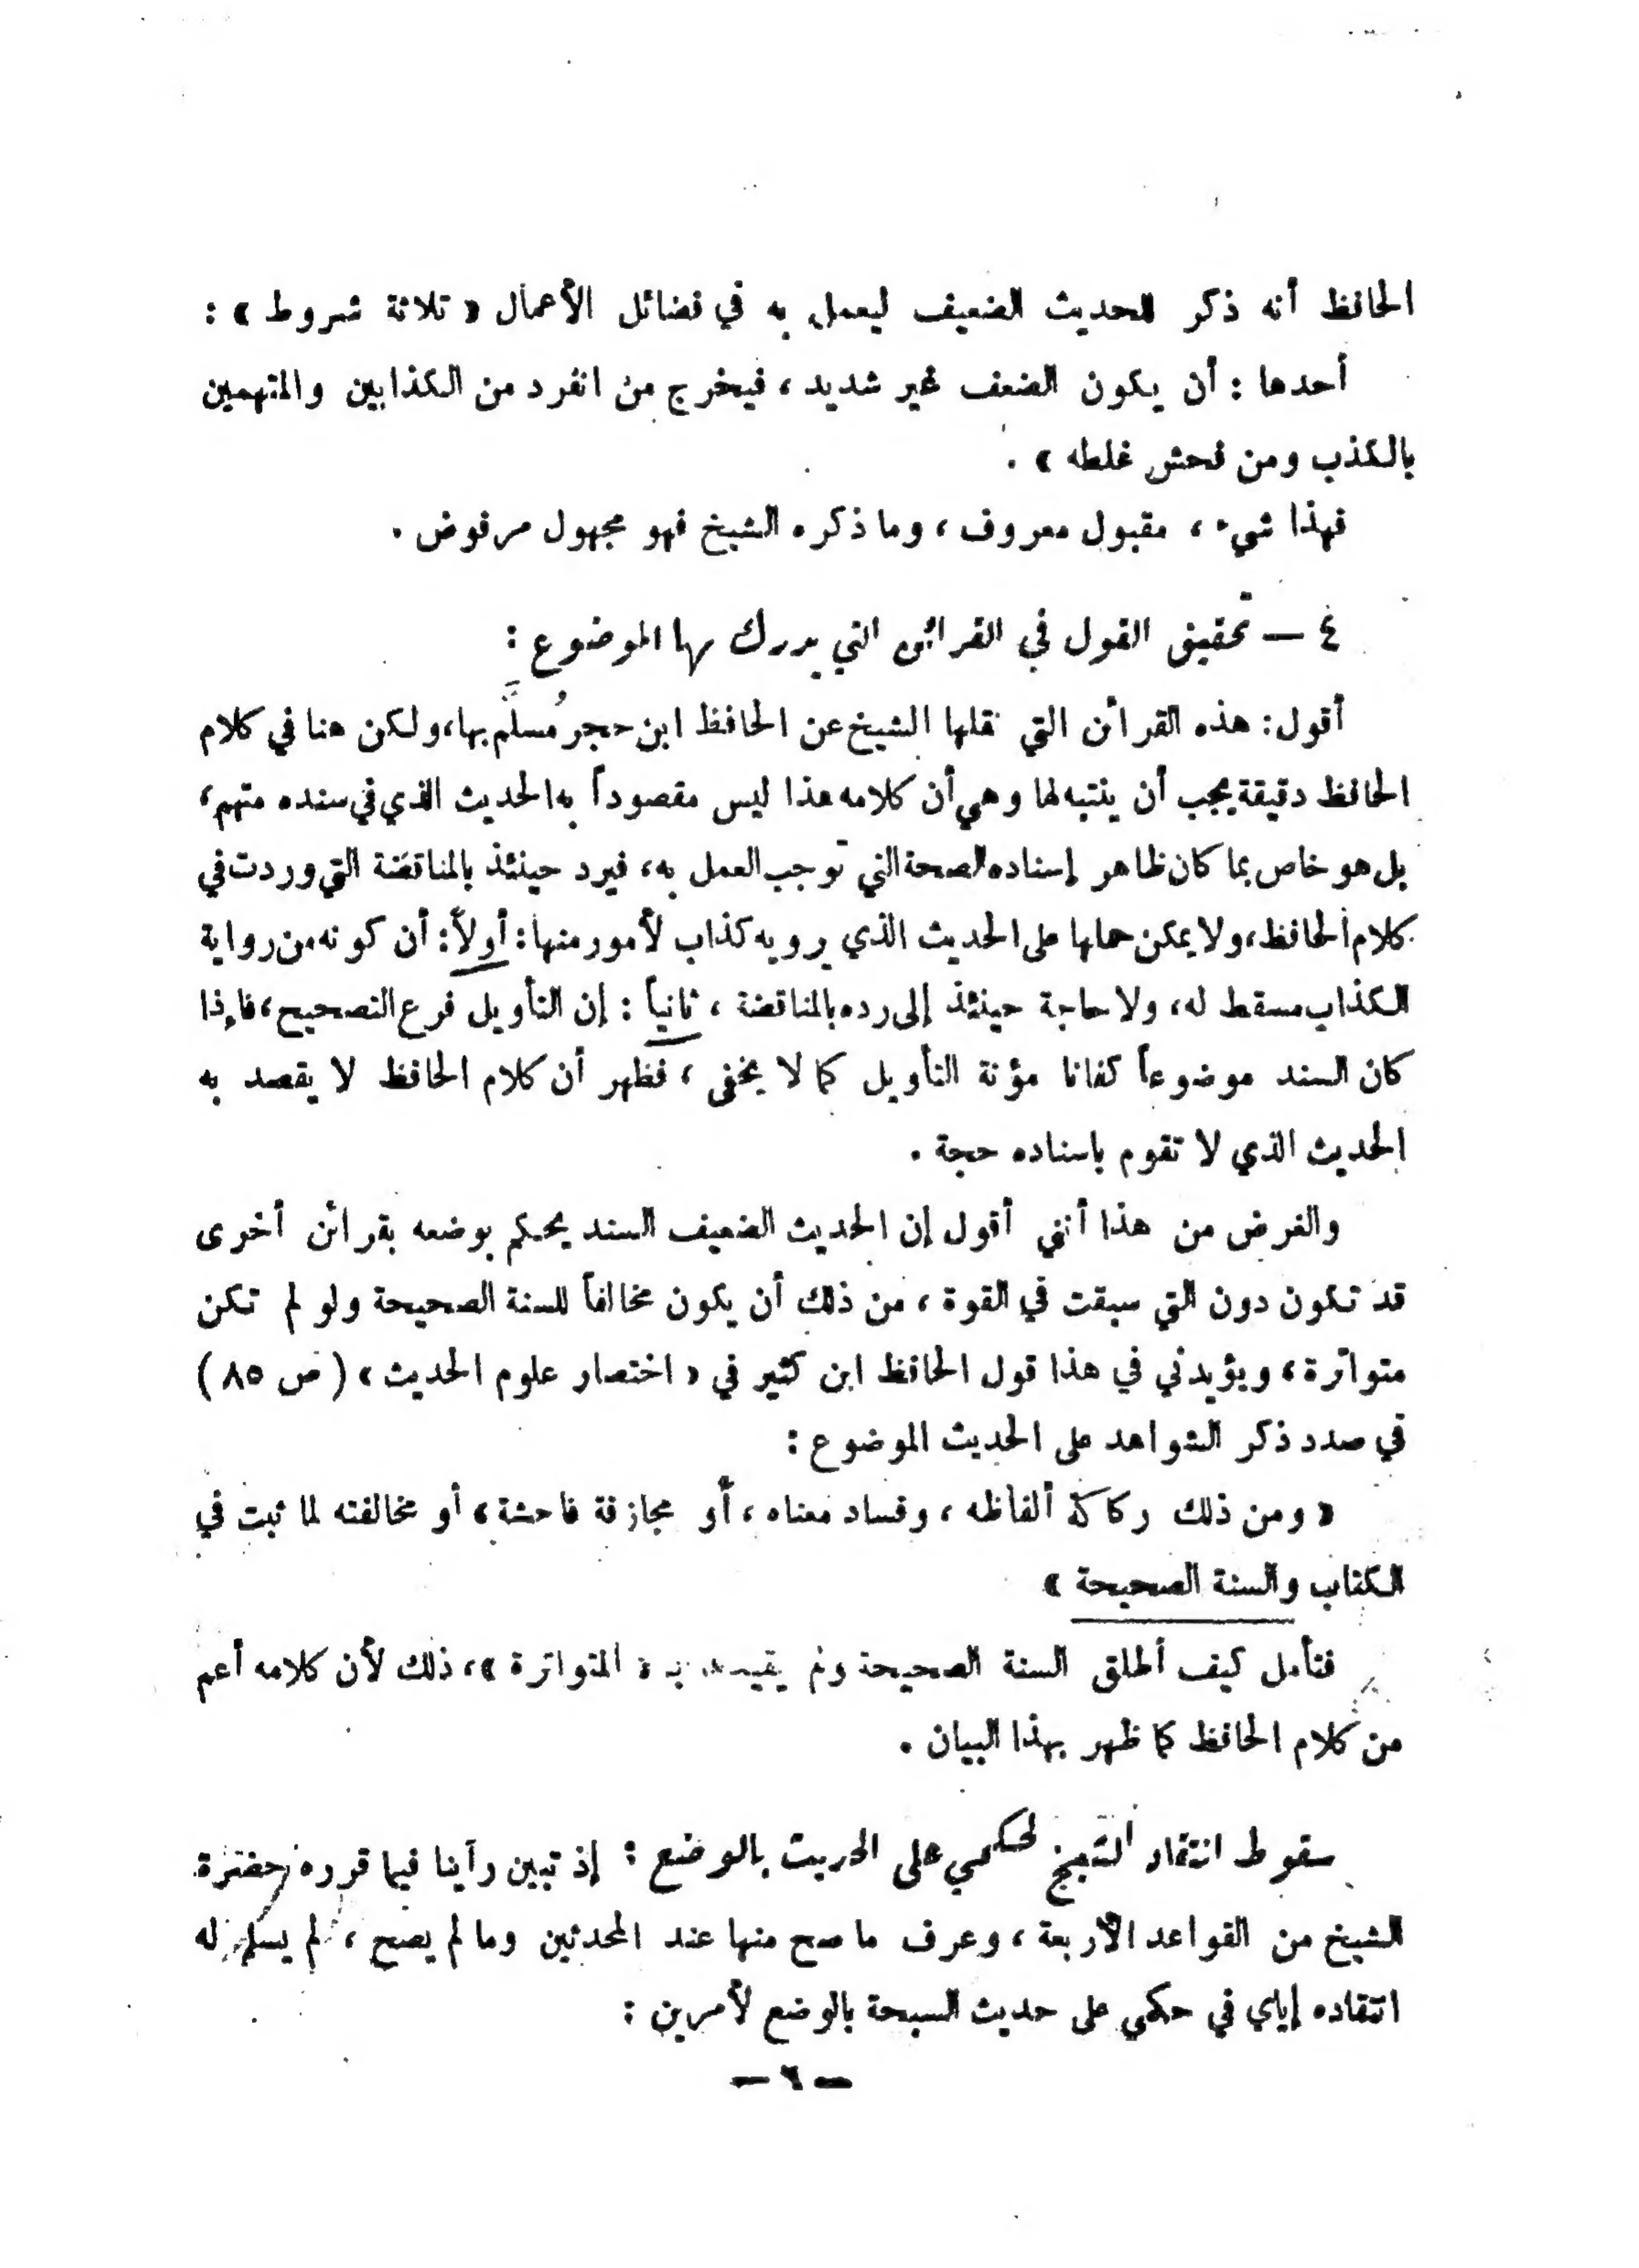 الحافظ أنه ذكر للحديث الضعيف ليعمل به في فضائل الأعمال « ثلاثة شروط » :
أحدها : أن يكون الضعف غير شديد ، فيخرج من انفرد من الكذابين والمتهمين
بالكذب ومن فحش غلطه » .
فهذا شيء ، مقبول معروف ، وما ذكره الشيخ فهو مجهول مرفوض .
٤ — تحقيق القول في القرائن التي يدرك بها الموضوع :
أقول : هذه القرائن التي نقلها الشيخ عن الحافظ ابن حجر مُسلَّم بها ، ولكن هنا في كلام
الحافظ دقيقة يجب أن ينتبه لها وهي أن كلامه هذا ليس مقصوداً به الحديث الذي في سنده متهم ،
بل هو خاص بما كان ظاهر إسناده الصحة التي توجب العمل به ، فيرد حينئذ بالمناقضة التي وردت في
كلام الحافظ ، ولا يمكن حملها على الحديث الذي يرويه كذاب لأمور منها : أولاً : أن كونه من رواية
الكذاب مسقط له ، ولا حاجة حينئذ إلى رده بالمناقضة ، ثانياً : إن التأويل فرع التصحيح ، فإذا
كان السند موضوعاً كفانا مؤنة التأويل كما لا يخفى ، فظهر أن كلام الحافظ لا يقصد به
الحديث الذي لا تقوم باسناده حجة .
والغرض من هذا أنني أقول إن الحديث الضعيف السند يحكم بوضعه بقرائن أخرى
قد تكون دون التي سبقت في القوة ، من ذلك أن يكون مخالفاً للسنة الصحيحة ولو لم تكن
متواترة ، ويؤيدني في هذا قول الحافظ ابن كثير في « اختصار علوم الحديث » ( ص ٨٥ )
في صدد ذكر الشواهد على الحديث الموضوع :
« ومن ذلك ركاكة ألفاظه ، وفساد معناه ، أو مجازفة فاحشة ، أو مخالفته لما ثبت في
الكتاب والسنة الصحيحة »
فتأمل كيف أطلق السنة الصحيحة ولم يقيدها بـ « المتواترة » ، ذلك لأن كلامه أعم
من كلام الحافظ كما ظهر بهذا البيان .
سقوط انتقاد الشيخ لحكمي على الحديث بالوضع : إذ تبين رأينا فيما قرره حضرة
الشيخ من القواعد الأربعة ، وعرف ما صح منها عند المحدثين وما لم يصح ، لم يسلم له
انتقاده إياي في حكمي على حديث السبحة بالوضع لأمرين :
— ٦ —